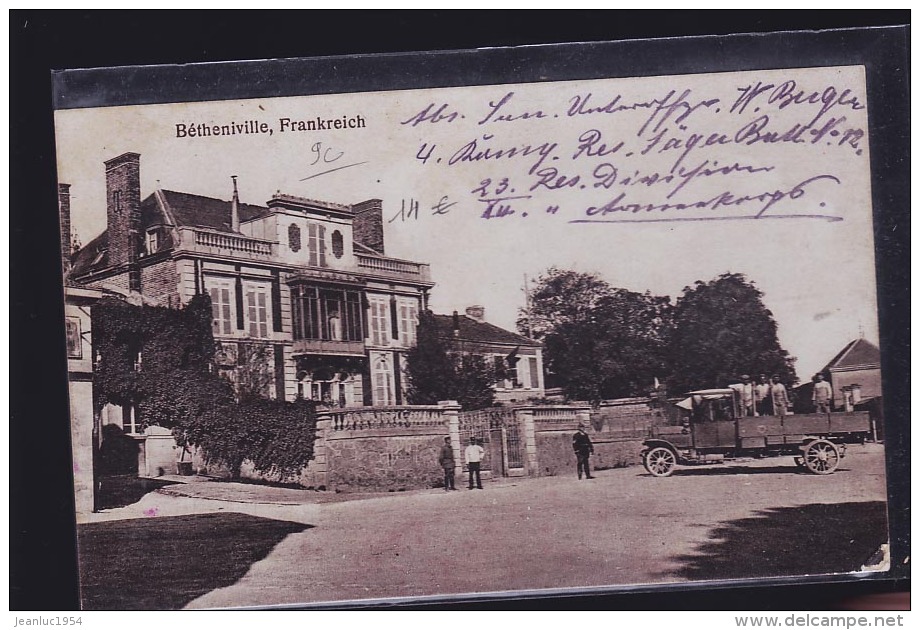 Bétheniville, Frankreich
Abs. San. Unteroffz. W. Buger
4. Komp. Res. Jäger Batl. No. 12.
23. Res. Division
XII. " Armeekorps
90
14 €
jeanluc1954
www.delcampe.net